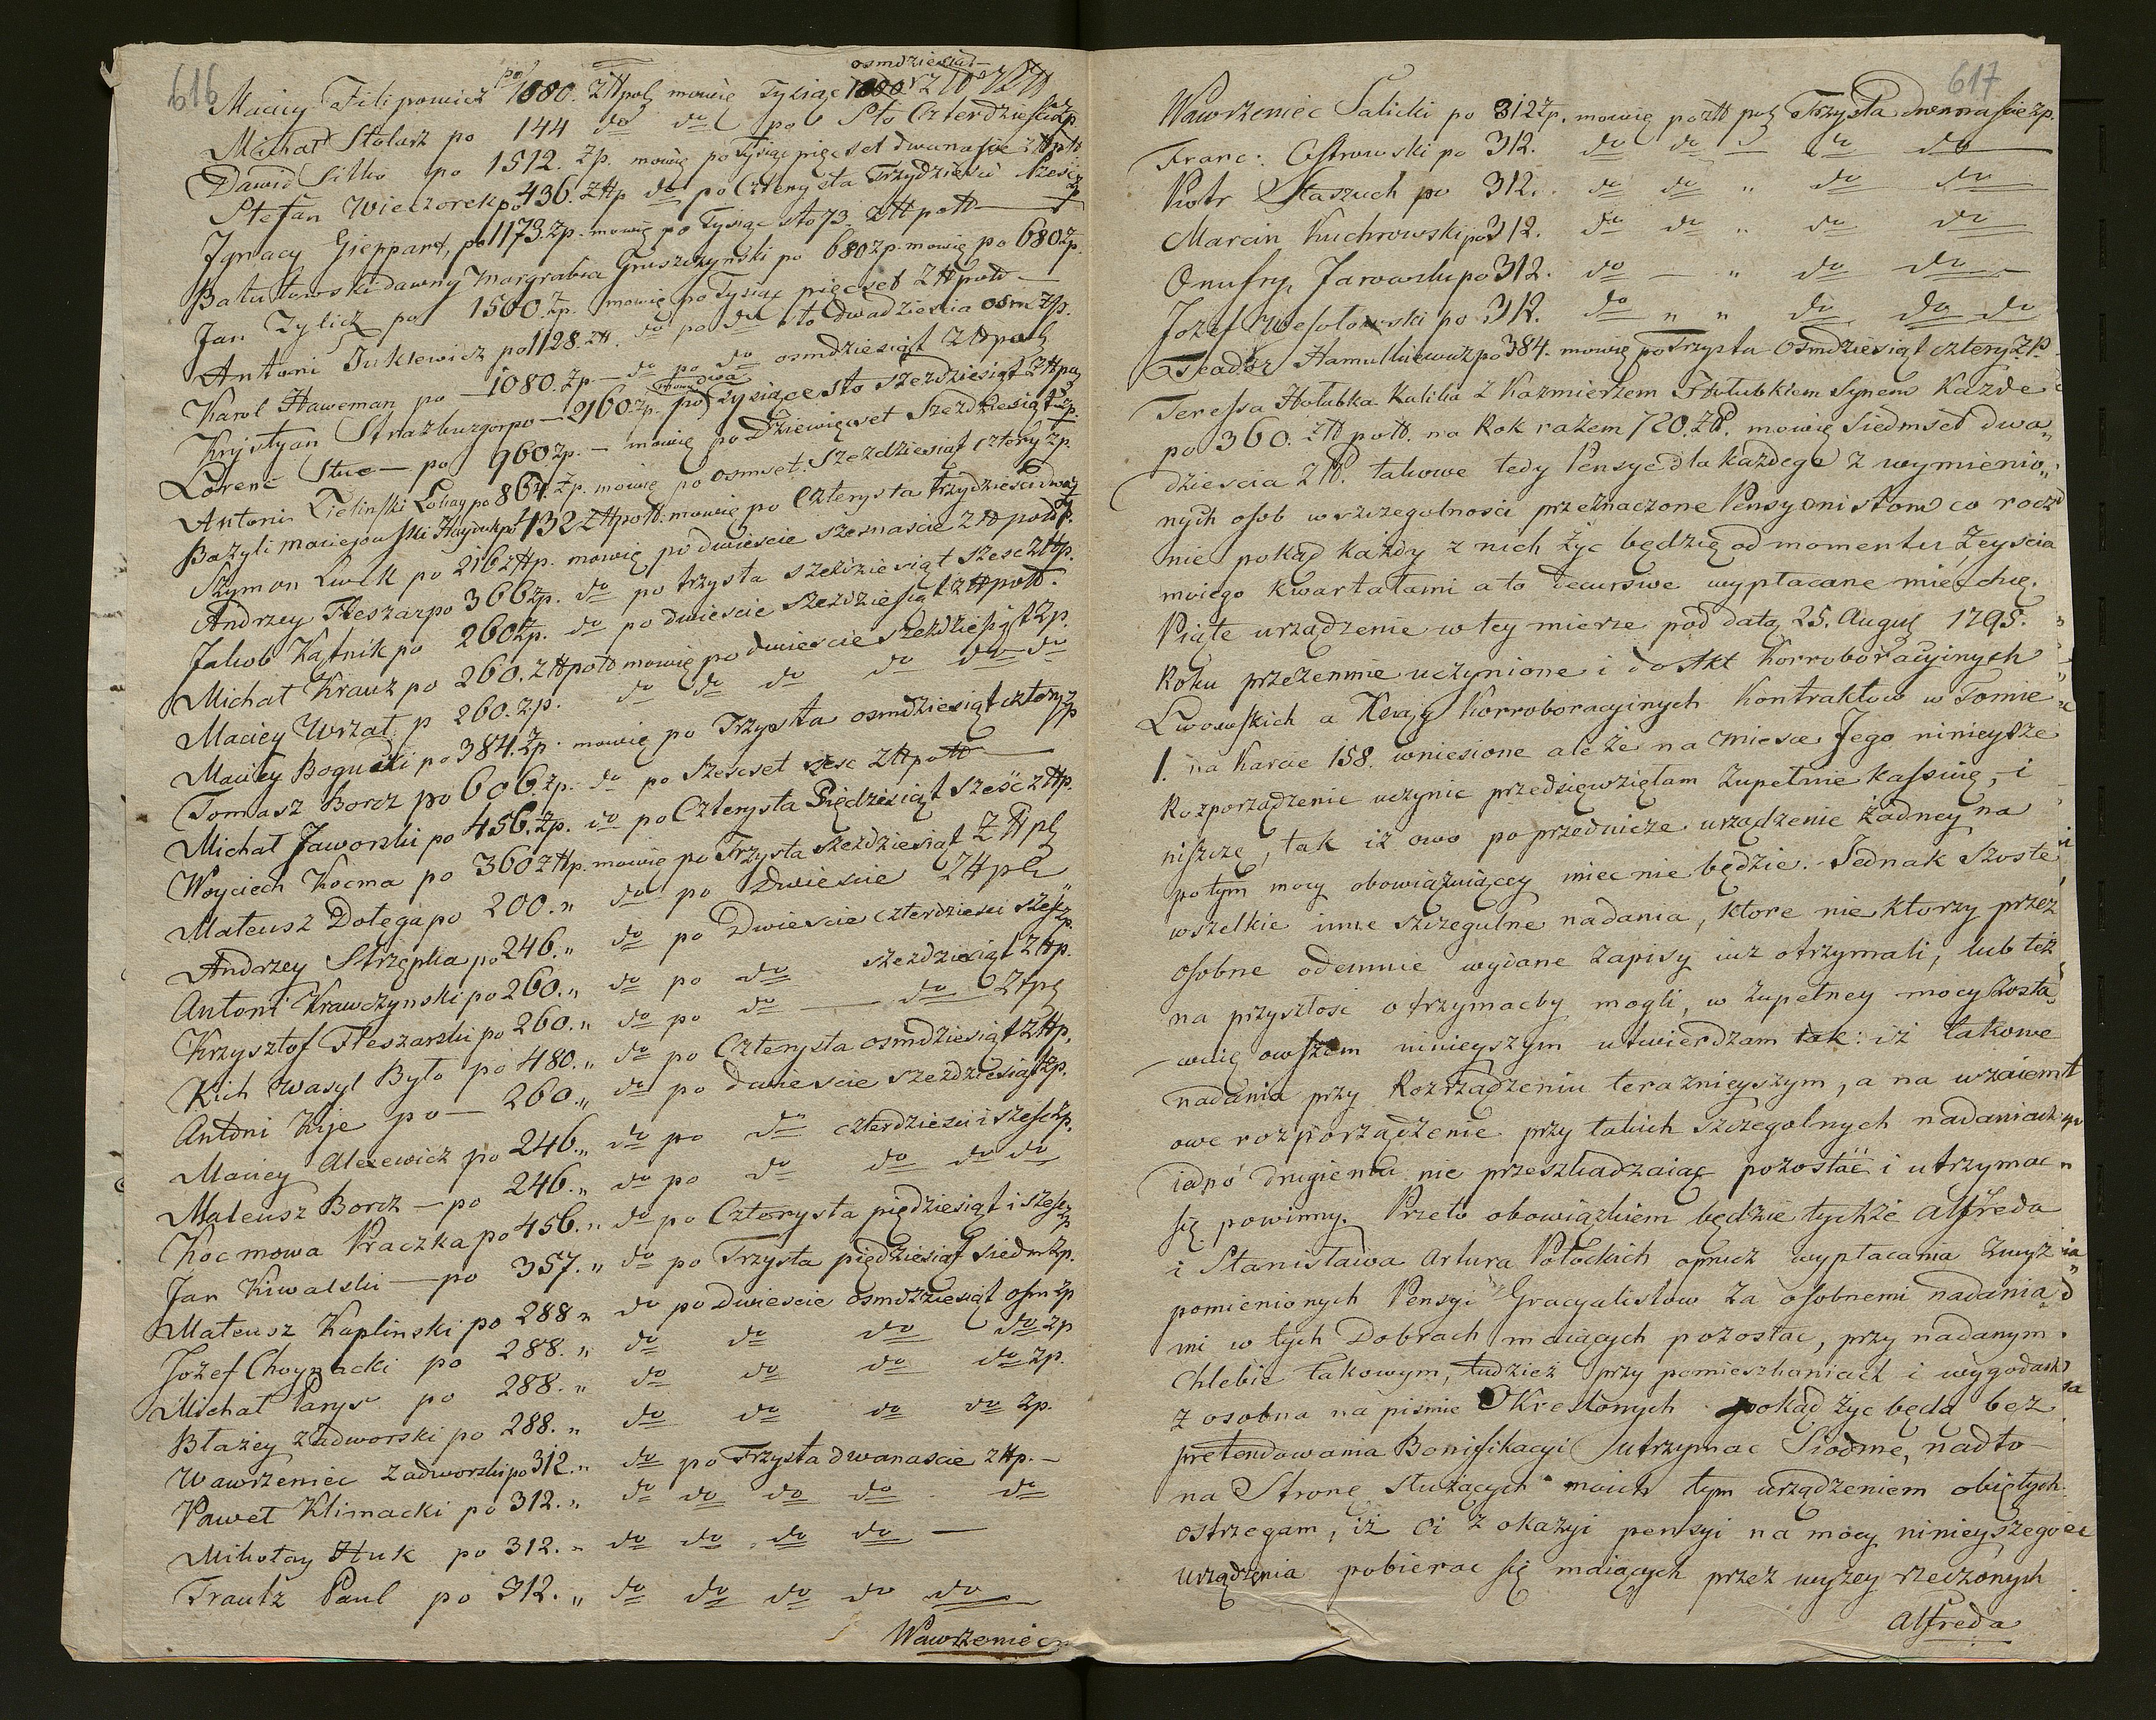 616
Maciey Filipowicz po 1080. złł polş mowię Tysiąc osmdziesiąt
Michał Stolarz po 144 do do po Sto Czterdzieści
Dawid Sitko po 1512. zp. mowię po Tysiąc pięcset dwanaście złł poll
Stefan Wieczorek po 436. złłp do po Czterysta Trzydzieści Sześć zp
Jgnacy Gieppart, po 1173. zp. mowię po Tysiąc sto 73. złł poll
Batutowski dawny Margrabia Gruszczynski po 680 zp. mowię po 680 zp.
Jan Zylicz po 1500. zp. mowię po Tysiąc pięcset złł poll
Antoni Tuklewicz po 1128. zł. do po do sto dwadziescia osm złp.
Karol Haweman po 1080. zp. — do po do osmdziesiąt złł polş
Kryistyan Strazburger po — 2160. zp. mowię po dwa Tysiące sto sześdziesiąt złł polş
Lorenc Stuc — po 960 zp. — mowię po Dziewięcset Sześdziesiąt zp.
Antoni Zielinski Lokay po 864. zp. mowię po osmset Sześdziesiąt cztery zp.
Bazyli Maciejowski Hayduk po 432 złł poll. mowię po Czterysta trzydzieści dwa
Szymon Lwek po 216 złłp. mowię po dwieście szesnaście złł poll
Andrzey Fleszar po 366 zp. do po trzysta sześdziesiąt szesc złłp.
Jakob Kątnik po 260 zp. do po dwieście Sześdziesiąt złł poll.
Michał Krauz po 260. złł poll mowię po dwieście Sześdziesiąt zp.
Maciey Wrzat. p 260. zp. do do do do do do
Maciey Bogucki po 384. zp. mowię po Trzysta osmdziesiąt cztery zp
Tomasz Borcz po 606. zp. do po Sześcset szesc złł poll
Michał Jaworski po 456. zp. do po Czterysta Pięcdziesiąt Sześć złłp.
Woyciech Kocma po 360 złłp. mowię po Trzysta Sześdziesiąt złłpş
Mateusz Dołęga po 200. " do po Dwieście złłpş
Andrzey Strzępka po 246. " do po Dwieście czterdzieści Sześ zp.
Antoni Krawczynski po 260. " do po do sześdziesiąt złłp.
Krzysztof Fleszarski po 260. " do po do — do złłpş
Kich Wasyl Było po 480. " do po Czterysta osmdziesiąt złłp.
Antoni Kije po — 260. " do po dwieście sześdziesiąt zp.
Maciey Alexewicz po 246. " do po do czterdzieści i sześc zp.
Mateusz Borcz — po 246. " do po do do do do
Kocmowa Praczka po 456. " do po Czterysta pięcdziesiąt i sześc zp
Jan Kiwalski — po 357. " do po Trzysta pięcdziesiąt siedm zp.
Mateusz Kaplinski po 288 " do po dwieście osmdziesiąt ośm zp
Jozef Choynacki po 288. " do do do do zp
Michał Parys po 288. " do do do do zp.
Błażey Zadworski po 288. " do do do do zp.
Wawrzeniec Zadworski po 312. " do po Trzysta dwanaście złłp. —
Paweł Klimacki po 312. " do do do do do
Mikołay Huk po 312. " do do do do —
Frantz Paul po 312. " do do do do do
Wawrzeniec
617
Wawrzeniec Salicki po 312 zp. mowię po złł polş Trzysta dwanaście zp.
Franc: Ostrowski po 312. do do do do
Piotr Staszuch po 312. do do " do do
Marcin Kuchrowski po 312. do do " do do
Onufry Jarowski po 312. do — " do do
Jozef Wesołowski po 312. do " " do do do
Teador Hamulkiewicz po 384. mowię po Trzysta Osmdziesiąt cztery zp.
Teressa Hołubka Kaliba z Kaźmierzem Hołubkiem Synem Kazde
po 360. złł poll. na Rok razem 720. zł. mowię Siedmset dwa„
dziescia zł. takowe tedy Pensye dla każdego z wymienio„
nych osob wszczegolności przeznaczone Pensyonistom co rocz
nie pokąd każdy z nich żyć będzie od momentu Zeyscia
moiego kwartałami a to decursive wypłacane mieć chcę.
Piąte urządzenie w tey mierze pod datą 25. Augusţ 1795.
Roku przezemnie uczynione i do Akt Korroboracyinych
Lwowskich a Księgi Korroboracyinych Kontraktow w Tomie
1. na Karcie 158. wniesione ale że na mieisce Jego ninieysze
Rozporządzenie uczynic przedsięwzięłam zupełnie kassuię, i
niszczę, tak iż owo poprzednicze urządzenie żadney na
potym mocy obowiązuiącey miec nie będzie. Jednak Szoste
wszelkie inne szczegulne nadania, ktore niektorzy przez
osobne odemnie wydane zapisy iuż otrzymali, lub też
na przyszłość otrzymacby mogli, w zupełney mocy zosta„
wuię owszem ninieyszym utwierdzam tak: iż takowe
nadania przy Rozrządzeniu teraznieyszym, a na wzaiem
owe rozporządzenie przy takich szczegolnych nadaniach
iedno drugiemu nie przeszkadzaiąc pozostać i utrzymac
się powinny. Przeto obowiązkiem będzie tychże Alfreda
i Stanisława Artura Potockich oprucz wypłacania zwyż
pomienionych Pensyi Gracyalistow za osobnemi nadania
mi w tych Dobrach maiących pozostac, przy nadanym
Chlebie takowym, tudzież przy pomieszkaniach i wygodach
z osobna na piśmie Okreslonych pokąd żyć będą bez
pretendowania Bonifikacyi utrzymac Siodme, nadto —
na Stronę służących moich tym urządzeniem obiętych
ostrzegam, iż ci z okazyi pensyi na mocy ninieyszego
urządzenia pobierac się maiących przez wyżey rzeczonych
Alfreda